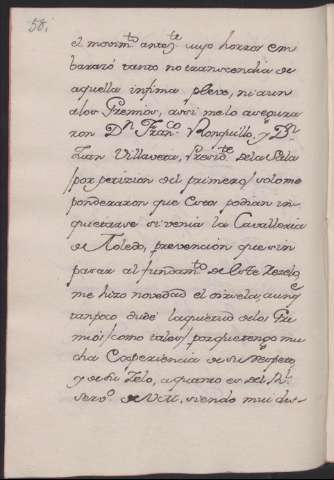 58,
el movim.to antez.te cuyo horror em
barazó tanto no transcendia de
aquella infima pleve, ni aun
alos Gremios, assi melo asegura
ron D.n Fran.co Ronquillo, y D.n
Juan Villaveta, Presid.te dela Sala
/por petizion del primero/ solo me
ponderaron que Cosa podian in-
quietarse si venia la Cavalleria
de Toledo, prevencion que sin
pasar al fundam.to de este rezelo,
me hizo novedad el oirsela, aunq.e
tampoco dudé laquietud delos Gre
mios /como tales/ porquetengo mu
cha Coxperiencia de su respeto,
y de su Zelo, a quanto es del R.l
Serv.o de VM, siendo mui des-